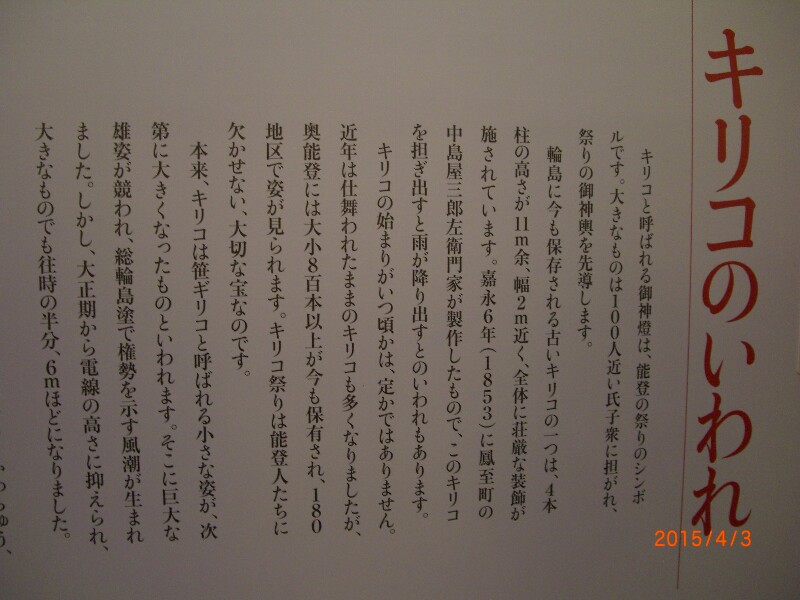 キリコのいわれ
キリコと呼ばれる御神燈は、能登の祭りのシンボ
ルです。大きなものは100人近い氏子衆に担がれ、
祭りの御神輿を先導します。
輪島に今も保存される古いキリコの一つは、4本
柱の高さが11m余、幅2m近く、全体に荘厳な装飾が
施されています。嘉永6年(1853)に鳳至町の
中島屋三郎左衛門家が製作したもので、このキリコ
を担ぎ出すと雨が降り出すとのいわれもあります。
キリコの始まりがいつ頃かは、定かではありません。
近年は仕舞われたままのキリコも多くなりましたが、
奥能登には大小8百本以上が今も保有され、180
地区で姿が見られます。キリコ祭りは能登人たちに
欠かせない、大切な宝なのです。
本来、キリコは笹ギリコと呼ばれる小さな姿が、次
第に大きくなったものといわれます。そこに巨大な
雄姿が競われ、総輪島塗で権勢を示す風潮が生まれ
ました。しかし、大正期から電線の高さに抑えられ、
大きなものでも往時の半分、6mほどになりました。
2015/4/3